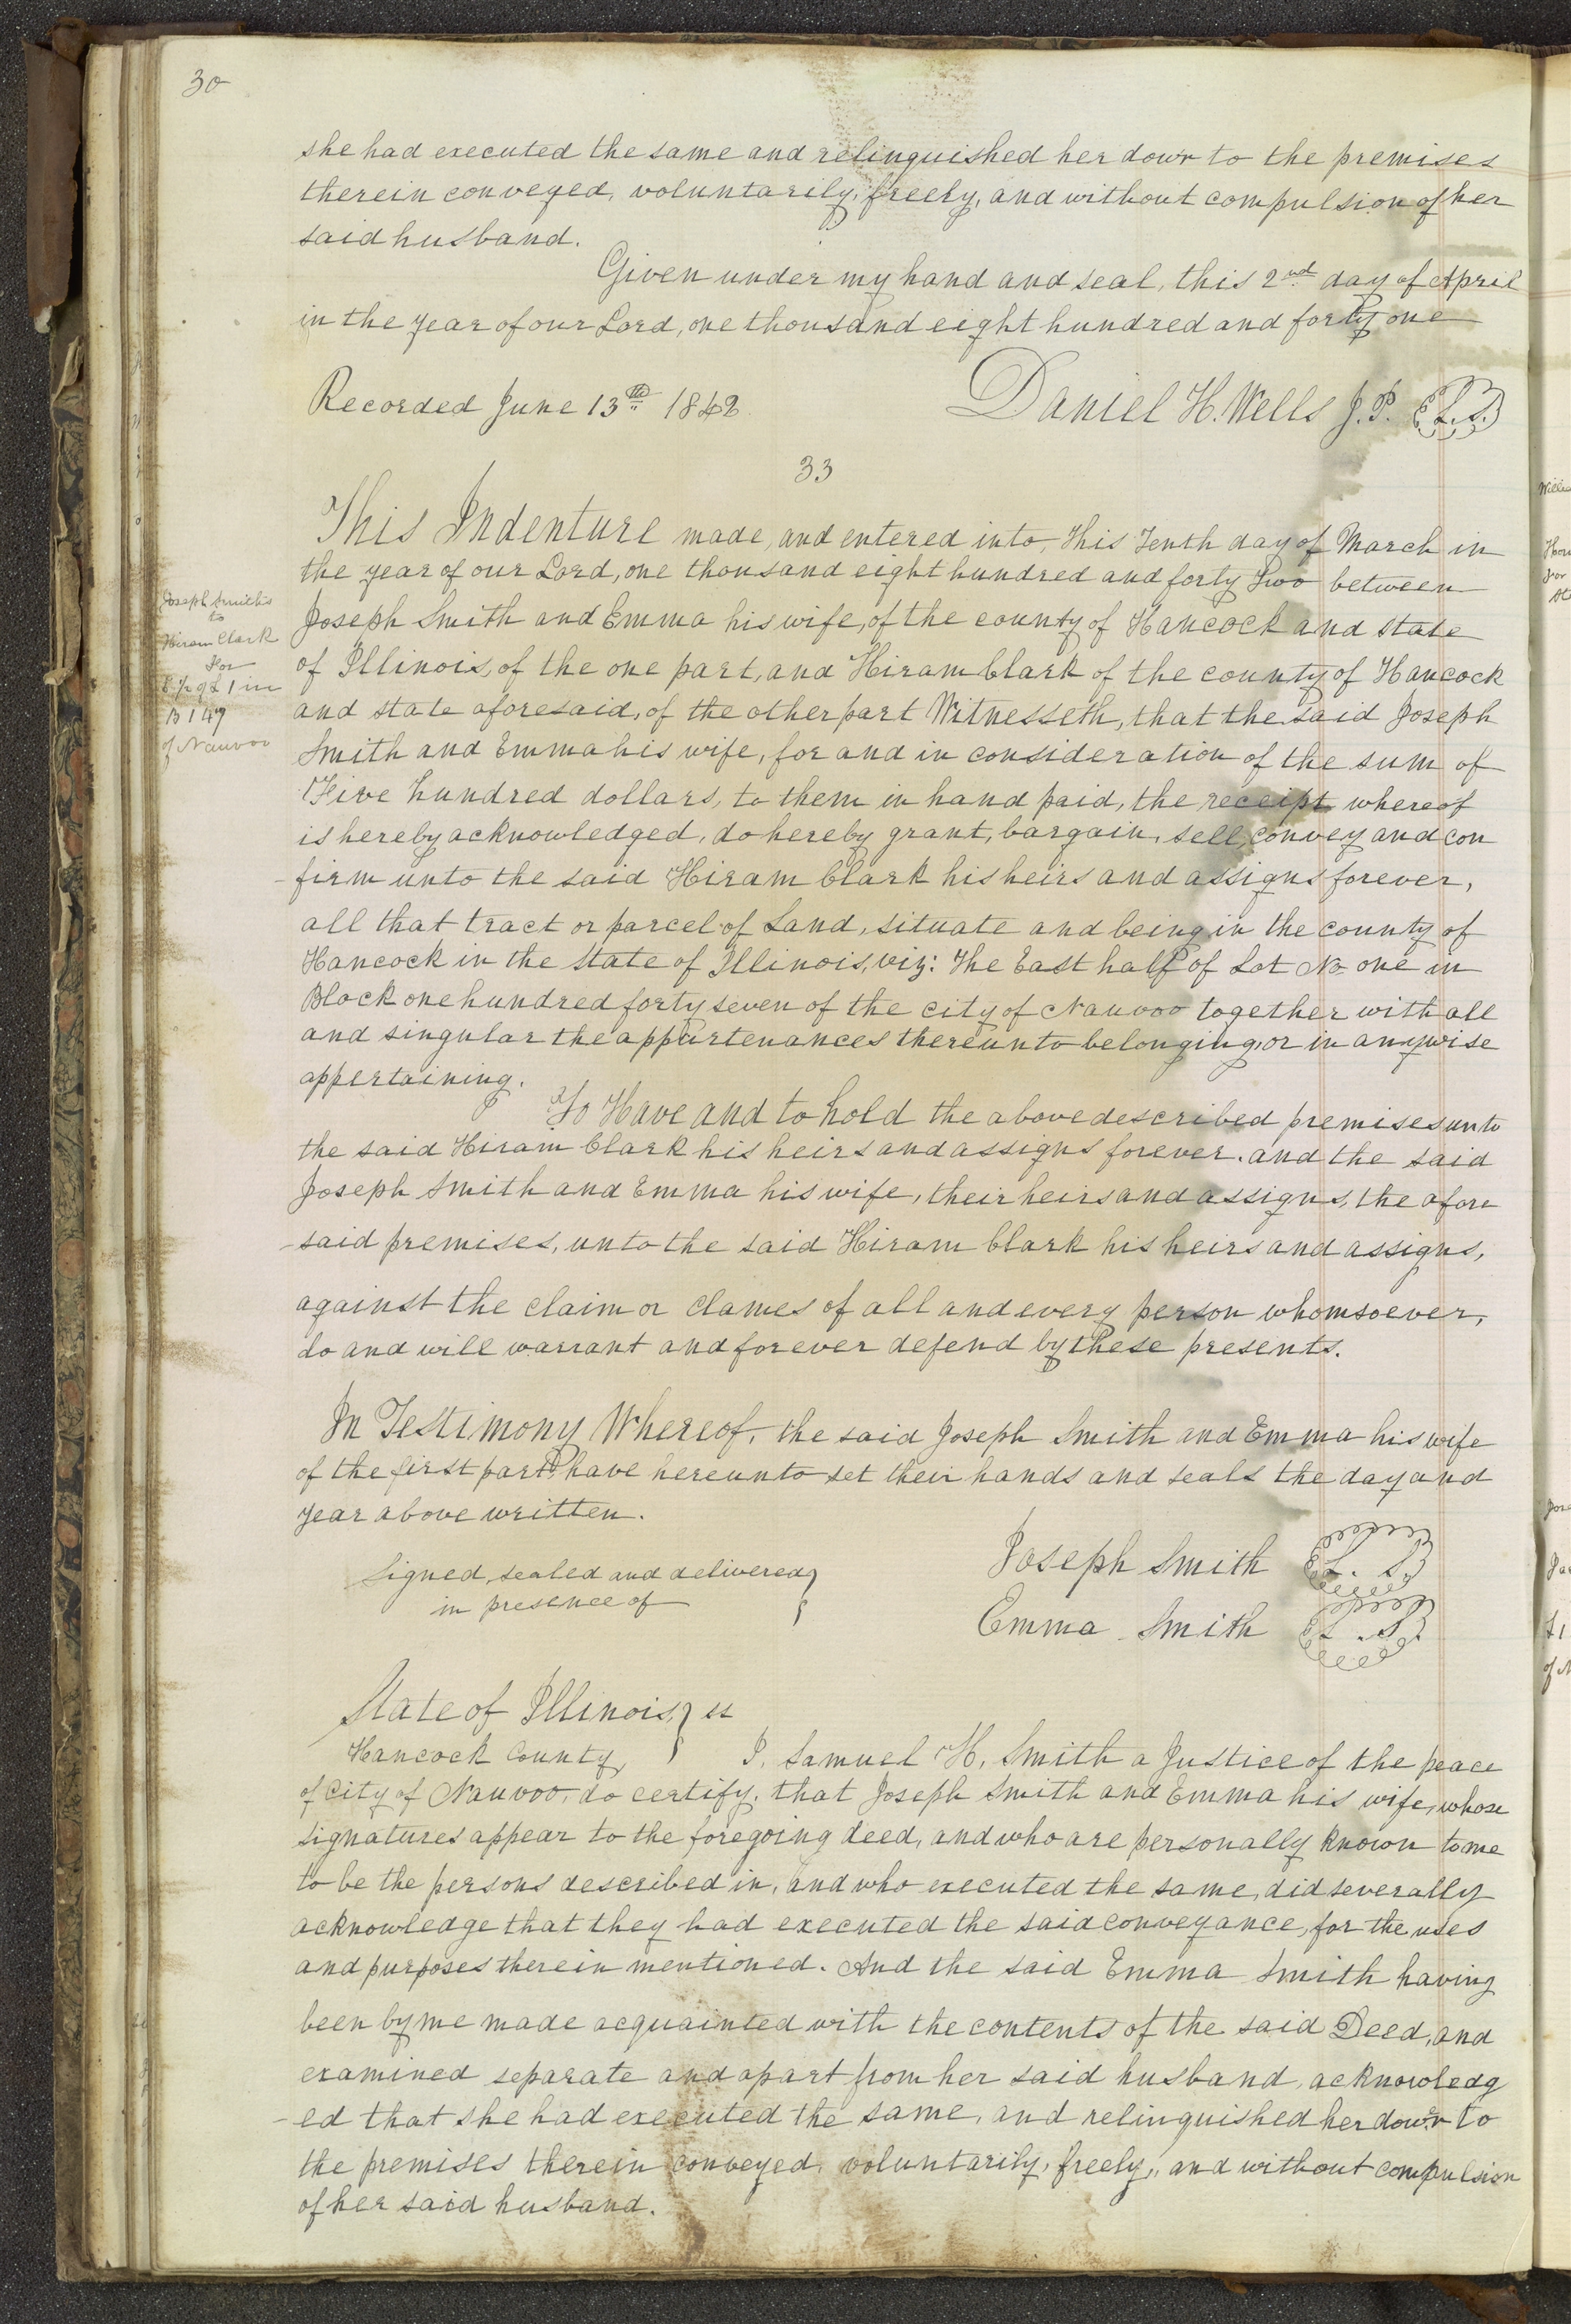 30
she had executed the same and relinquished her dowr to the premises
therein conveyed, voluntarily, freely, and without compulsion of her
said husband.
Given under my hand and seal, this 2nd day of April
in the year of our Lord, one thousand eight hundred and forty one
Recorded June 13th 1842
Daniel H. Wells J. P. L.S.
33
This Indenture made, and entered into, this Tenth day of March in
the year of our Lord, one thousand eight hundred and forty Two between
Joseph Smith and Emma his wife, of the county of Hancock and state
of Illinois, of the one part, and Hiram Clark of the county of Hancock
and state aforesaid, of the other part Witnesseth, that the said Joseph
Smith and Emma his wife, for and in consideration of the sum of
Five hundred dollars, to them in hand paid, the receipt whereof
is hereby acknowledged, do hereby grant, bargain, sell, convey and con
-firm unto the said Hiram Clark his heirs and assigns forever,
all that tract or parcel of Land, situate and being in the county of
Hancock in the State of Illinois, viz: The East half of Lot No one in
Block one hundred forty seven of the city of Nauvoo together with all
and singular the appurtenances thereunto belonging, or in anywise
appertaining.
To Have and to hold the above described premises unto
the said Hiram Clark his heirs and assigns forever. and the said
Joseph Smith and Emma his wife, their heirs and assigns, the afore
-said premises, unto the said Hiram Clark his heirs and assigns,
against the claim or clames of all and every person whomsoever,
do and will warrant and forever defend by these presents.
In Testimony Whereof, the said Joseph Smith and Emma his wife
of the first part have hereunto set their hands and seals the day and
year above written.
Signed, sealed and delivered
in presence of
Joseph Smith L. S.
Emma Smith L. S.
State of Illinois, ss
Hancock County, I, Samuel H. Smith a Justice of the peace
of City of Nauvoo, do certify, that Joseph Smith and Emma his wife, whose
signatures appear to the foregoing deed, and who are personally known to me
to be the persons described in, and who executed the same, did severally
acknowledge that they had executed the said conveyance, for the uses
and purposes therein mentioned. And the said Emma Smith having
been by me made acquainted with the contents of the said Deed, and
examined separate and apart from her said husband, acknowledg
-ed that she had executed the same, and relinquished her dowr to
the premises therein conveyed, voluntarily, freely, and without compulsion
of her said husband.
Joseph Smith
to
Hiram Clark
For
E ½ of L 1 in
B 147
of Nauvoo